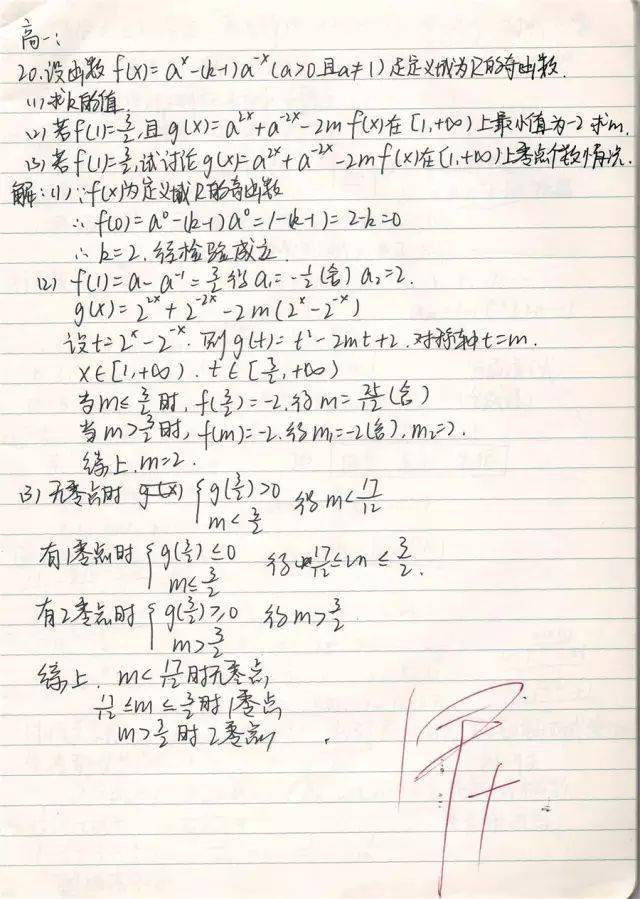 高一:
20.设函数 f(x)=aˣ-(k-1)a⁻ˣ(a>0且a≠1)是定义域为R的奇函数.
(1)求k的值.
(2)若f(1)=3/2,且g(x)=a²ˣ+a⁻²ˣ-2mf(x)在[1,+∞)上最小值为-2求m.
(3)若f(1)=3/2,试讨论g(x)=a²ˣ+a⁻²ˣ-2mf(x)在[1,+∞)上零点个数情况.
解:(1)∵f(x)为定义域R的奇函数
∴f(0)=a⁰-(k-1)a⁰=1-(k-1)=2-k=0
∴k=2,经检验成立.
(2) f(1)=a-a⁻¹=3/2得a₁=-1/2(舍)a₂=2.
g(x)=2²ˣ+2⁻²ˣ-2m(2ˣ-2⁻ˣ)
设t=2ˣ-2⁻ˣ.则g(t)=t²-2mt+2.对称轴t=m.
x∈[1,+∞).t∈[3/2,+∞)
当m≤3/2时,f(3/2)=-2.得m=25/12(舍)
当m>3/2时,f(m)=-2.得m₁=-2(舍),m₂=2.
综上,m=2.
(3)无零点时 g(x) { g(3/2)>0 m<3/2 得m<17/12
有1零点时 { g(3/2)≤0 m≤3/2 得17/12≤m≤3/2.
有2零点时 { g(3/2)≥0 m>3/2 得m>3/2
综上. m<17/12时无零点,
17/12≤m≤3/2时1零点,
m>3/2时2零点,